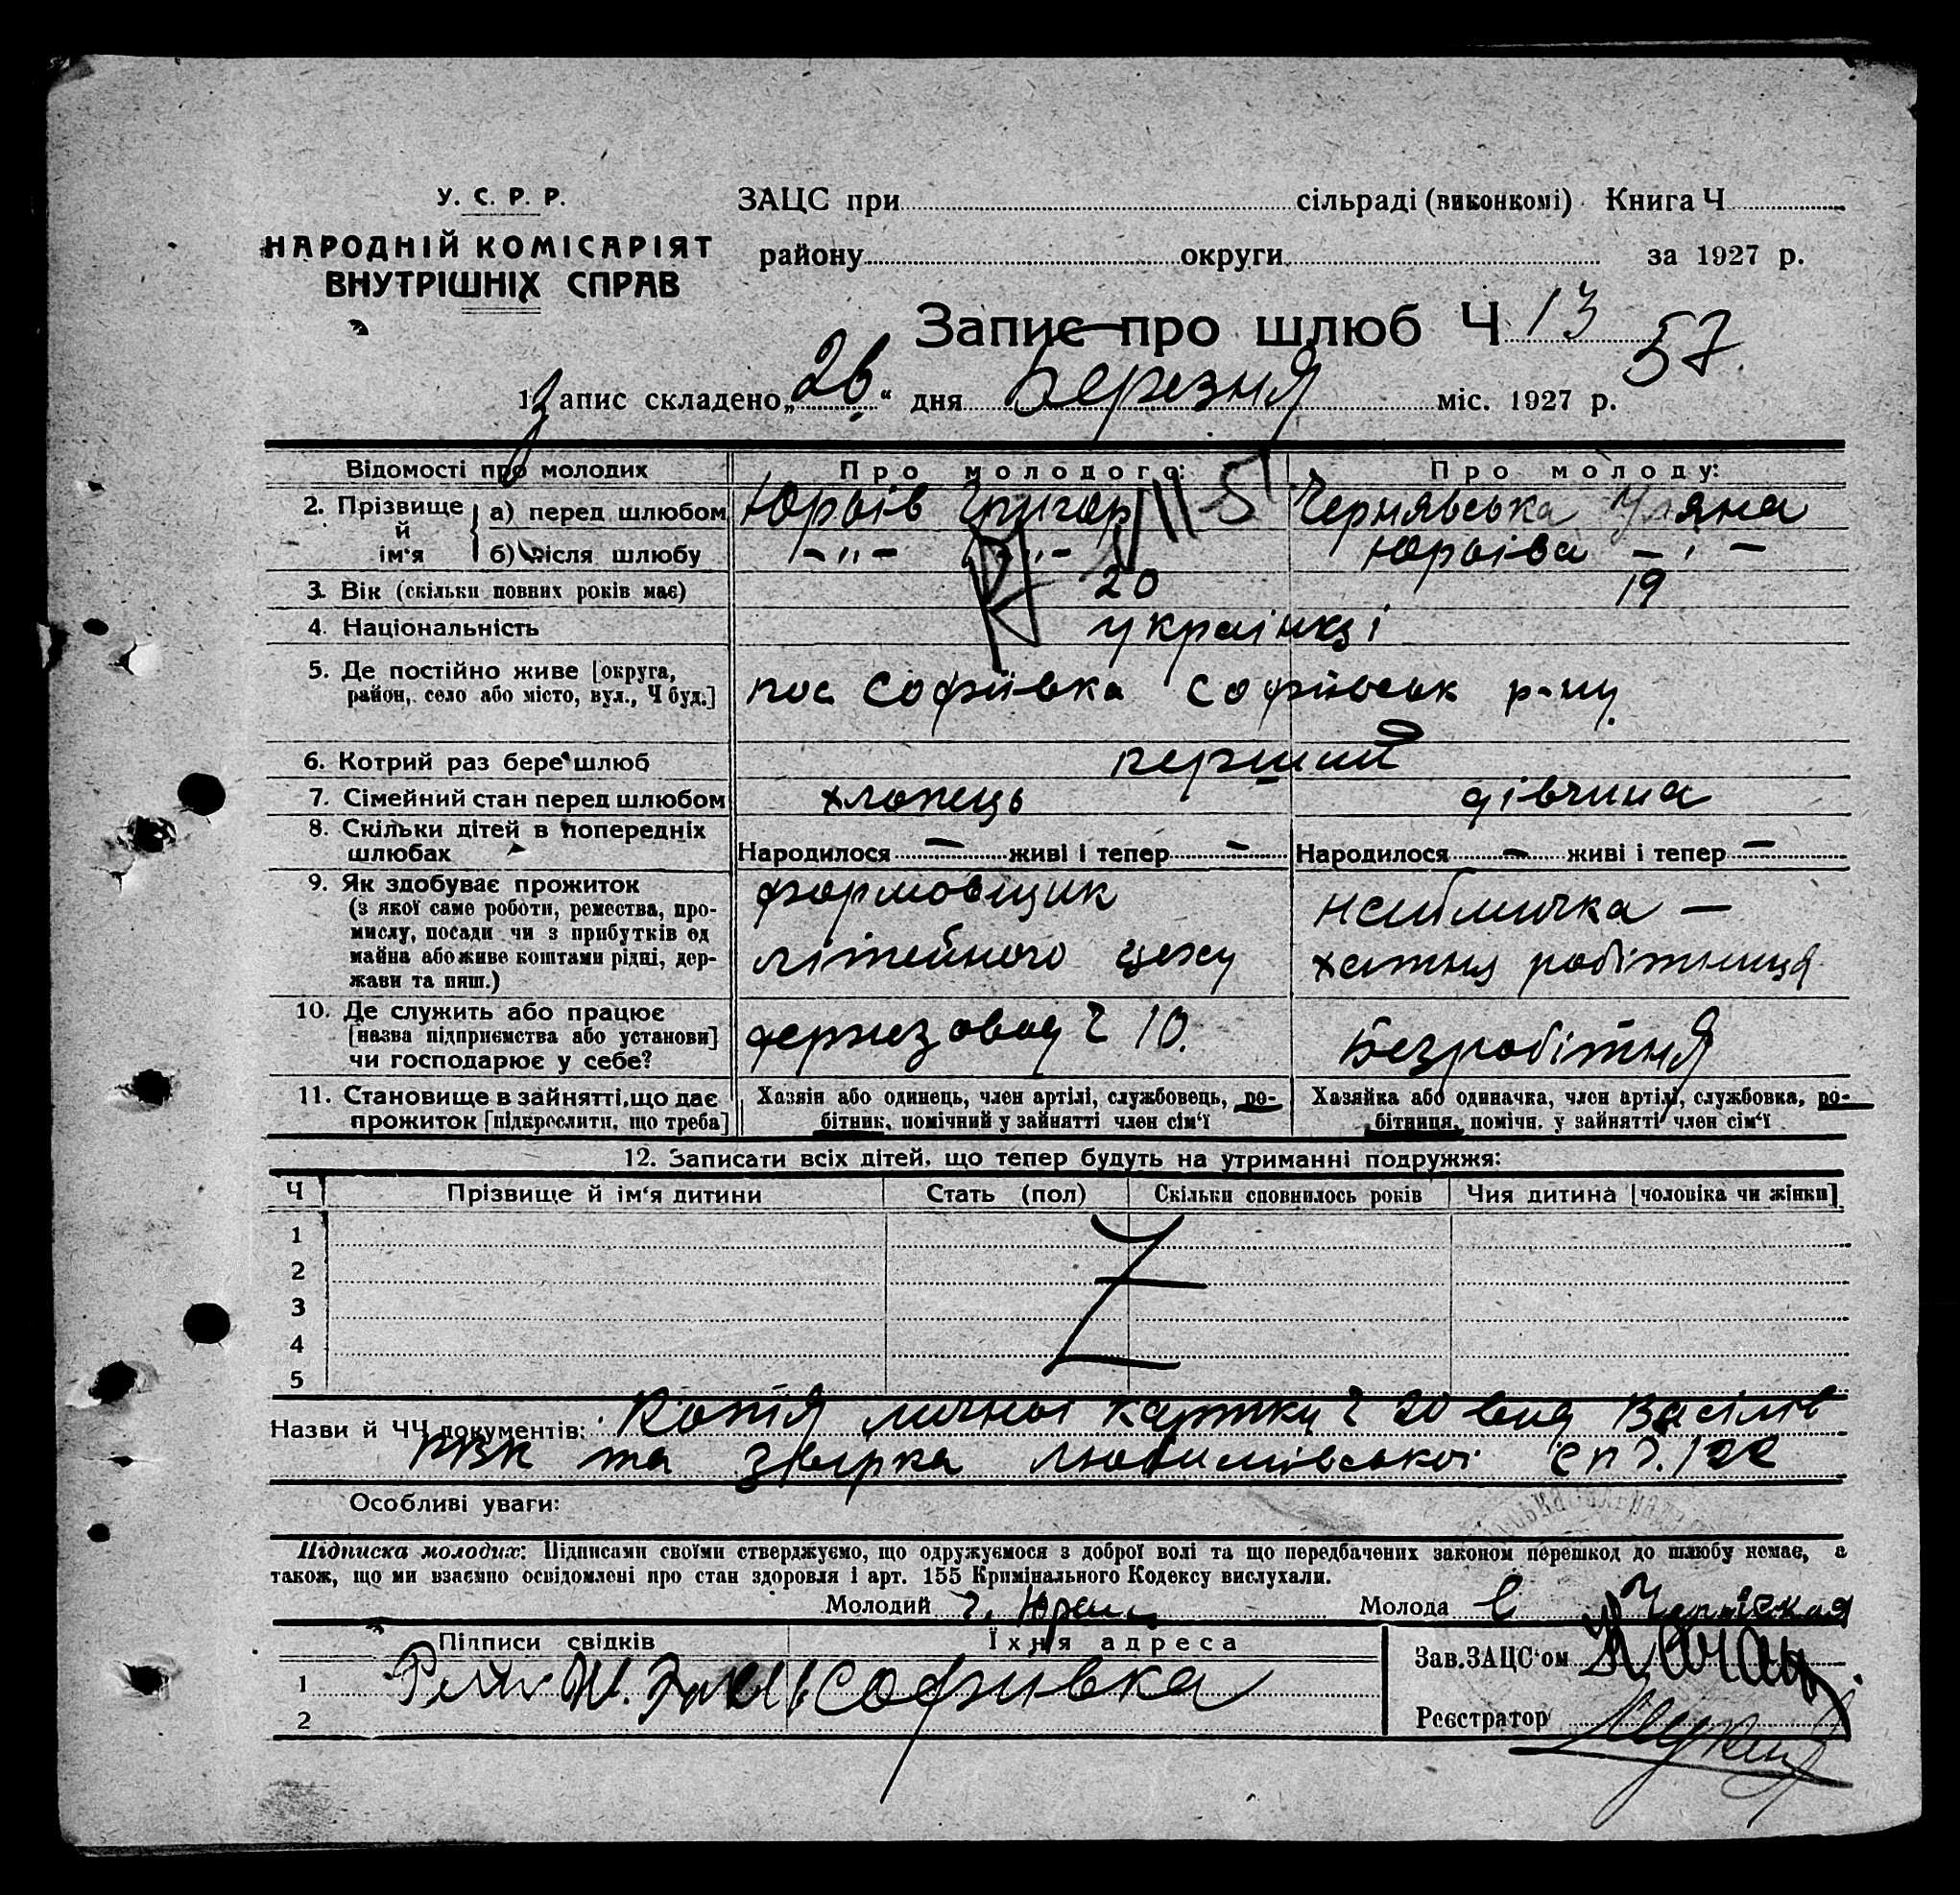 У. С. Р. Р.
НАРОДНІЙ КОМІСАРІЯТ
ВНУТРІШНІХ СПРАВ
ЗАЦС при сільраді (виконкомі) Книга Ч
району округи за 1927 р.
Запис про шлюб Ч 13
57
1 Запис складено „26" дня Березня міс. 1927 р.
Відомості про молодих Про молодого: Про молоду:
2. Прізвище й ім'я а) перед шлюбом Юрьів Григор Чернявська Уляна
б) після шлюбу -"- -"- Юрьіва -"-
3. Вік (скільки повних років має) 20 19
4. Національність українці
5. Де постійно живе [округа,
район, село або місто, вул., Ч буд.] пос Софіївка Софіївськ р-ну
6. Котрий раз бере шлюб перший
7. Сімейний стан перед шлюбом хлопець дівчина
8. Скільки дітей в попередніх
шлюбах Народилося — живі і тепер — Народилося — живі і тепер —
9. Як здобуває прожиток формовщик наймичка —
(з якої саме роботи, ремества, про-
мислу, посади чи з прибутків од літейного цеху хатня робітниця
майна або живе коштами рідні, дер-
жави та инш.)
10. Де служить або працює
[назва підприємства або установи] держзавод Ч 10. Безробітня
чи господарює у себе?
11. Становище в зайнятті, що дає Хазяін або одинець, член артілі, службовець, ро- Хазяйка або одиначка, член артілі, службовка, ро-
прожиток [підкреслити, що треба] бітник, помічний у зайнятті член сім'ї бітниця, помічн. у зайнятті член сім'ї
12. Записати всіх дітей, що тепер будуть на утриманні подружжя:
Ч Прізвище й ім'я дитини Стать (пол) Скільки сповнилось років Чия дитина [чоловіка чи жінки]
1
2
3
4
5
Назви й ЧЧ документів: Копія личної картки Ч 20 вид Васілів
РВК та звірка Любимівської с п Ч. 122
Особливі уваги:
Підписка молодих: Підписами своїми стверджуємо, що одружуємося з доброї волі та що передбачених законом перешкод до шлюбу немає, а
також, що ми взаємно освідомлені про стан здоровля і арт. 155 Кримінального Кодексу вислухали.
Молодий Молода
Підписи свідків Їхня адреса Зав.ЗАЦС'ом
1 Софиівка
2 Реєстратор